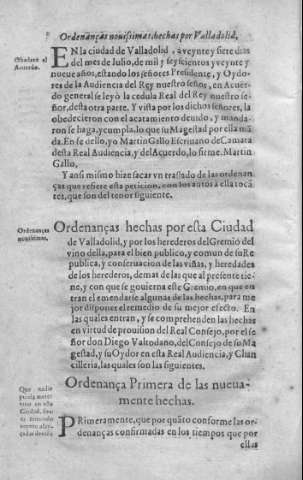 Ordenanças nouissimas, hechas por Valladolid,
Obedece el Acuerdo.
EN la ciudad de Valladolid, a veynte y siete dias
del mes de Iulio, de mil y seyscientos y veynte y
nueue años, estando los señores Presidente, y Oydo-
res de la Audiencia del Rey nuestro señor, en Acuer-
do general se leyò la cedula Real del Rey nuestro se-
ñor, desta otra parte. Y vista por los dichos señores, la
obedecieron con el acatamiento deuido, y manda-
ron se haga, y cumpla, lo que su Magestad por ella má-
da. En fe dello, yo Martin Gallo Escriuano de Camara
desta Real Audiencia, y del Acuerdo, lo firme. Martin
Gallo.
Y ansi mismo hize sacar vn traslado de las ordenan-
ças que refiere esta peticion, con los autos à ella tocã-
tes, que son del tenor siguiente.
Ordenanças nouissimas.
Ordenanças hechas por esta Ciudad
de Valladolid, y por los herederos del Gremio del
vino della, para el bien publico, y comun de su Re
publica, y conseruacion de las viñas, y heredades
de los herederos, demas de las que al presente tie-
ne, y con que se gouierna este Gremio, en que en
tran el emendarse algunas de las hechas, para me
jor disponer el remedio de su mejor efecto. En
las quales entran, y se comprehenden las hechas
en virtud de prouision del Real Consejo, por el se
ñor don Diego Valtodano, del Consejo de su Ma
gestad, y su Oydor en esta Real Audiencia, y Chan
cilleria, las quales son las siguientes.
Ordenança Primera de las nueua-
mente hechas.
Que nadie
pueda meter
vino en esta
Ciudad,
PRimeramente, que por quãto conforme las or-
denanças confirmadas en los tiempos que por
ellas